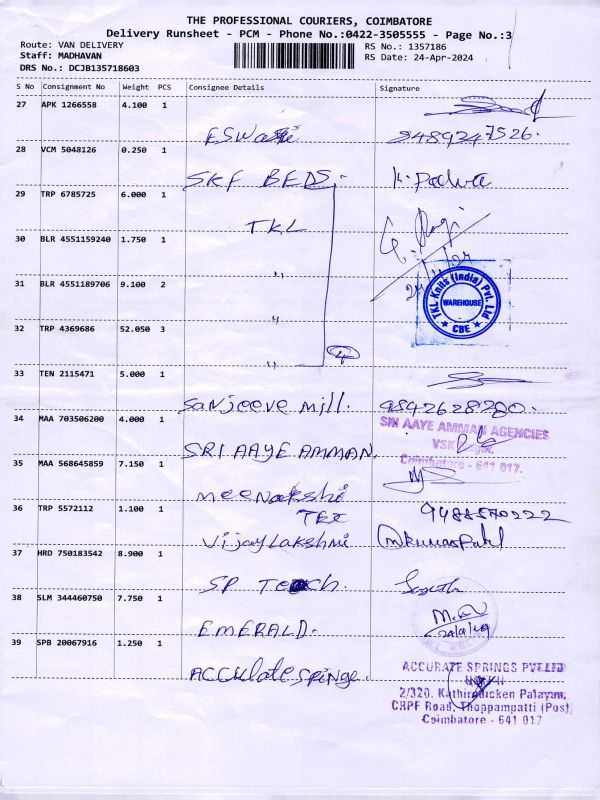 THE PROFESSIONAL COURIERS, COIMBATORE
Delivery Runsheet - PCM - Phone No.:0422-3505555 - Page No.:3
Route: VAN DELIVERY RS No.: 1357186
Staff: MADHAVAN RS Date: 24-Apr-2024
DRS No.: DCJB135718603
S No Consignment No Weight PCS Consignee Details Signature
27 APK 1266558 4.100 1
ESWari 9489347526.
28 VCM 5048126 0.250 1
SKF BEDS. K. Padma
29 TRP 6785725 6.000 1
TKL
30 BLR 4551159240 1.750 1
"
31 BLR 4551189706 9.100 2
TKL Knits (India) Pvt. Ltd
WAREHOUSE
CBE
"
32 TRP 4369686 52.050 3
" 4
33 TEN 2115471 5.000 1
Sanjeeve Mill. 9842628280.
34 MAA 703506200 4.000 1
SRI AAYE AMMAN AGENCIES
SRI AAYE AMMAN.
Coimbatore - 641 017.
35 MAA 568645859 7.150 1
Meenakshi
TEX 9488570222
36 TRP 5572112 1.100 1
Vijaylakshmi
37 HRD 750183542 8.900 1
SP Tech.
38 SLM 344460750 7.750 1
EMERALD.
39 SPB 20067916 1.250 1
Accurate Spinge.
ACCURATE SPRINGS PVT LTD
2/320, Kathiradicken Palayam,
CRPF Road, Thoppampatti (Post)
Coimbatore - 641 017